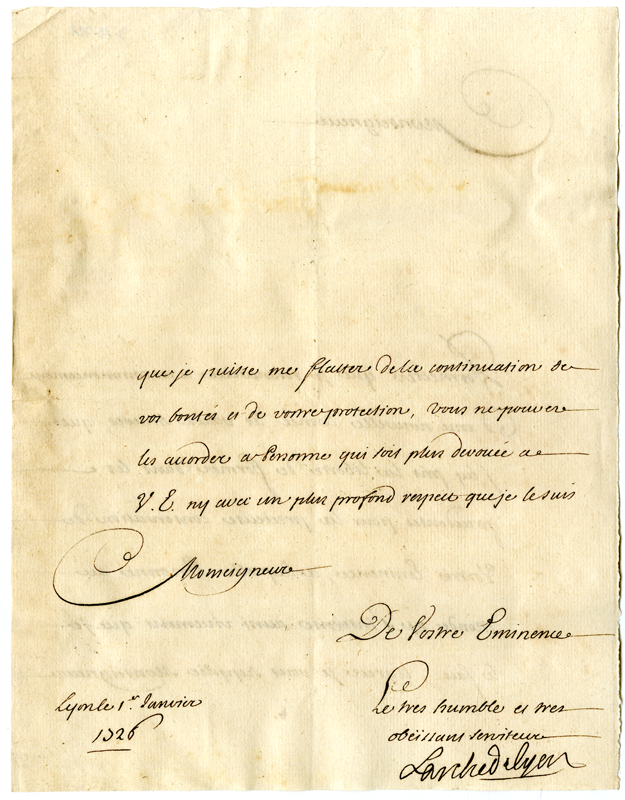 que je puisse me flatter de la continuation de
vos bontés et de vostre protection, vous ne pouvere
les accorder a Personne qui soit plus devouée a
V. E. ny avec un plus profond respect que je le suis
Monseigneur
De Vostre Eminence
Lyon le 1.er Janvier
1726
Le tres humble et tres
obeissant serviteur
L'arche de lyon